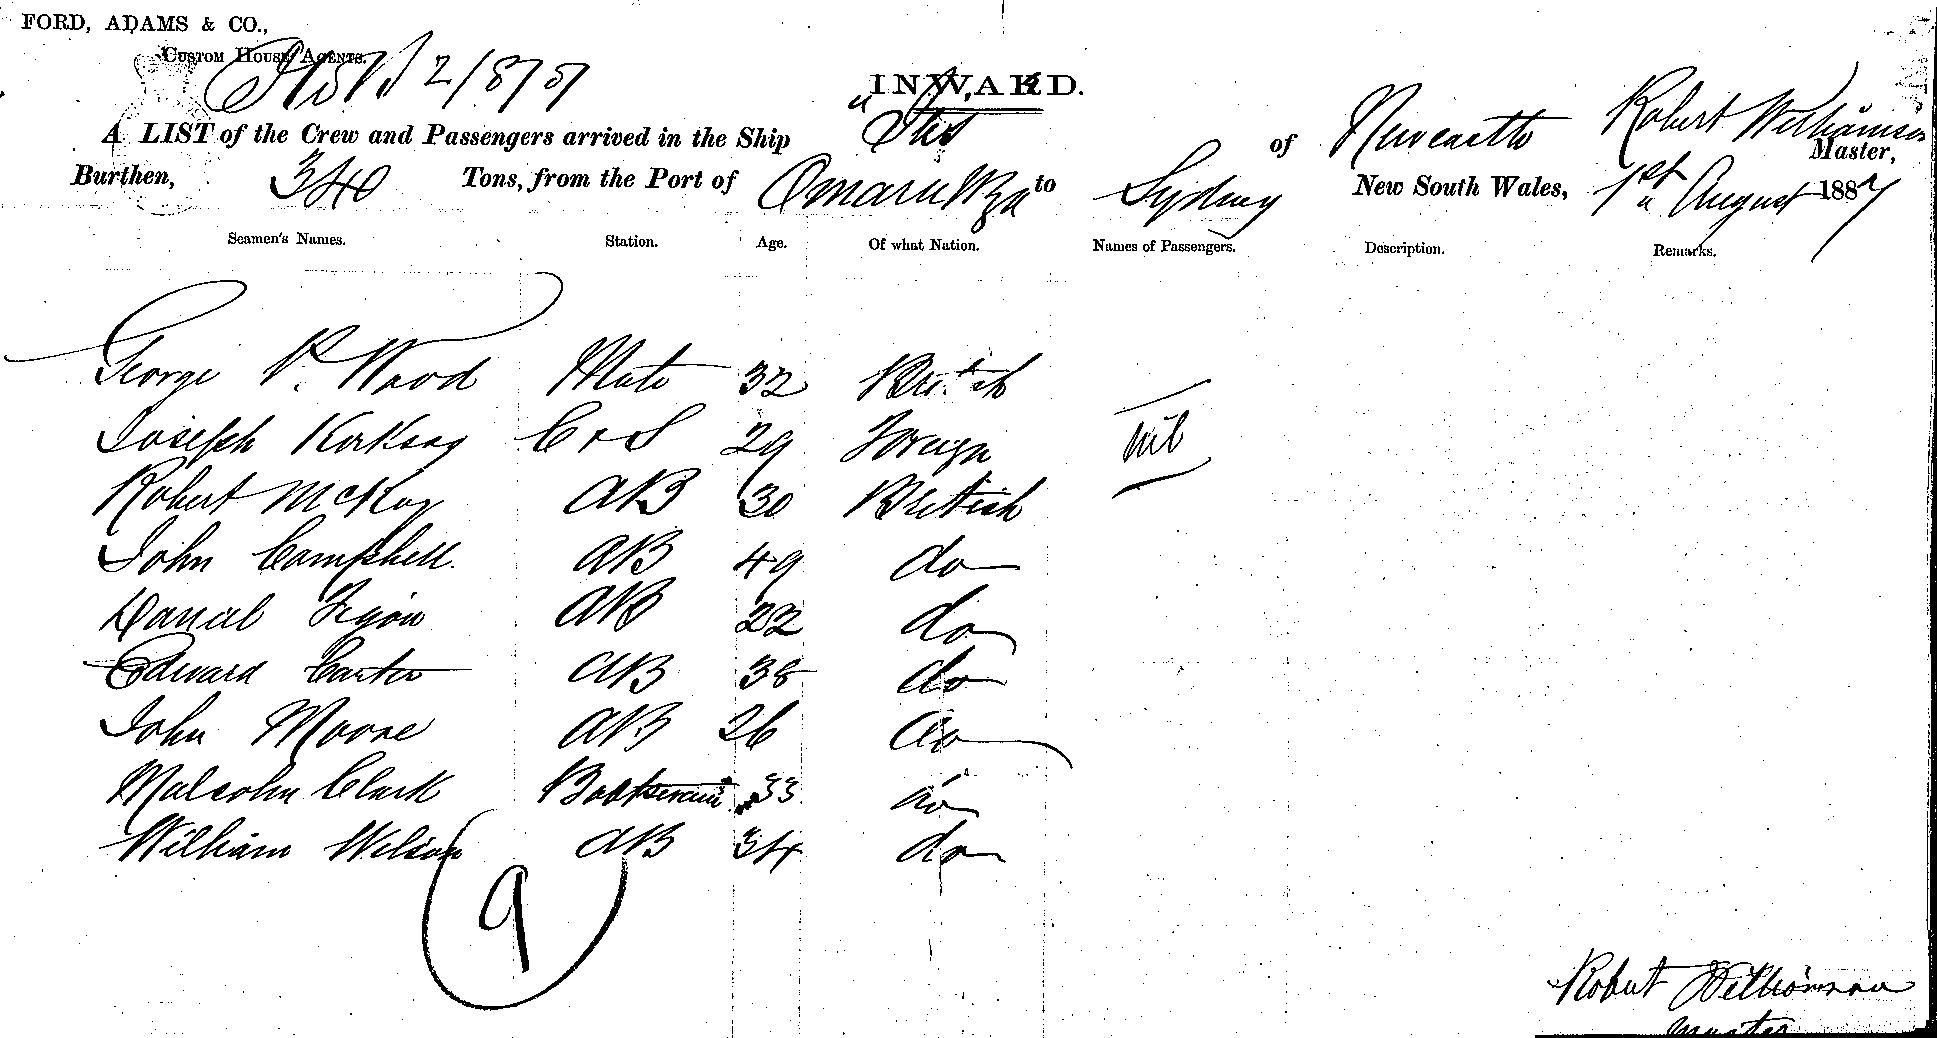 FORD, ADAMS & CO.,
CUSTOM HOUSE AGENTS.
2/8/87
INWARD.
A LIST of the Crew and Passengers arrived in the Ship of Newcastle Robert Williamson Master,
Burthen, 340 Tons, from the Port of Omaru NZd to Sydney New South Wales, 1st August 1887
Seamen's Names. Station. Age. Of what Nation. Names of Passengers. Description. Remarks.
George P. Wood Mate 32 British
Joseph C & S 29 Foreign nil
Robert McKay AB 30 British
John Campbell. AB 49 do
Daniel AB 22 do
Edward Carter AB 38 do
John Moore AB 26 do
Malcolm Clark 33 do
William Wilson AB 34 do
9
Robert Williamson
Master